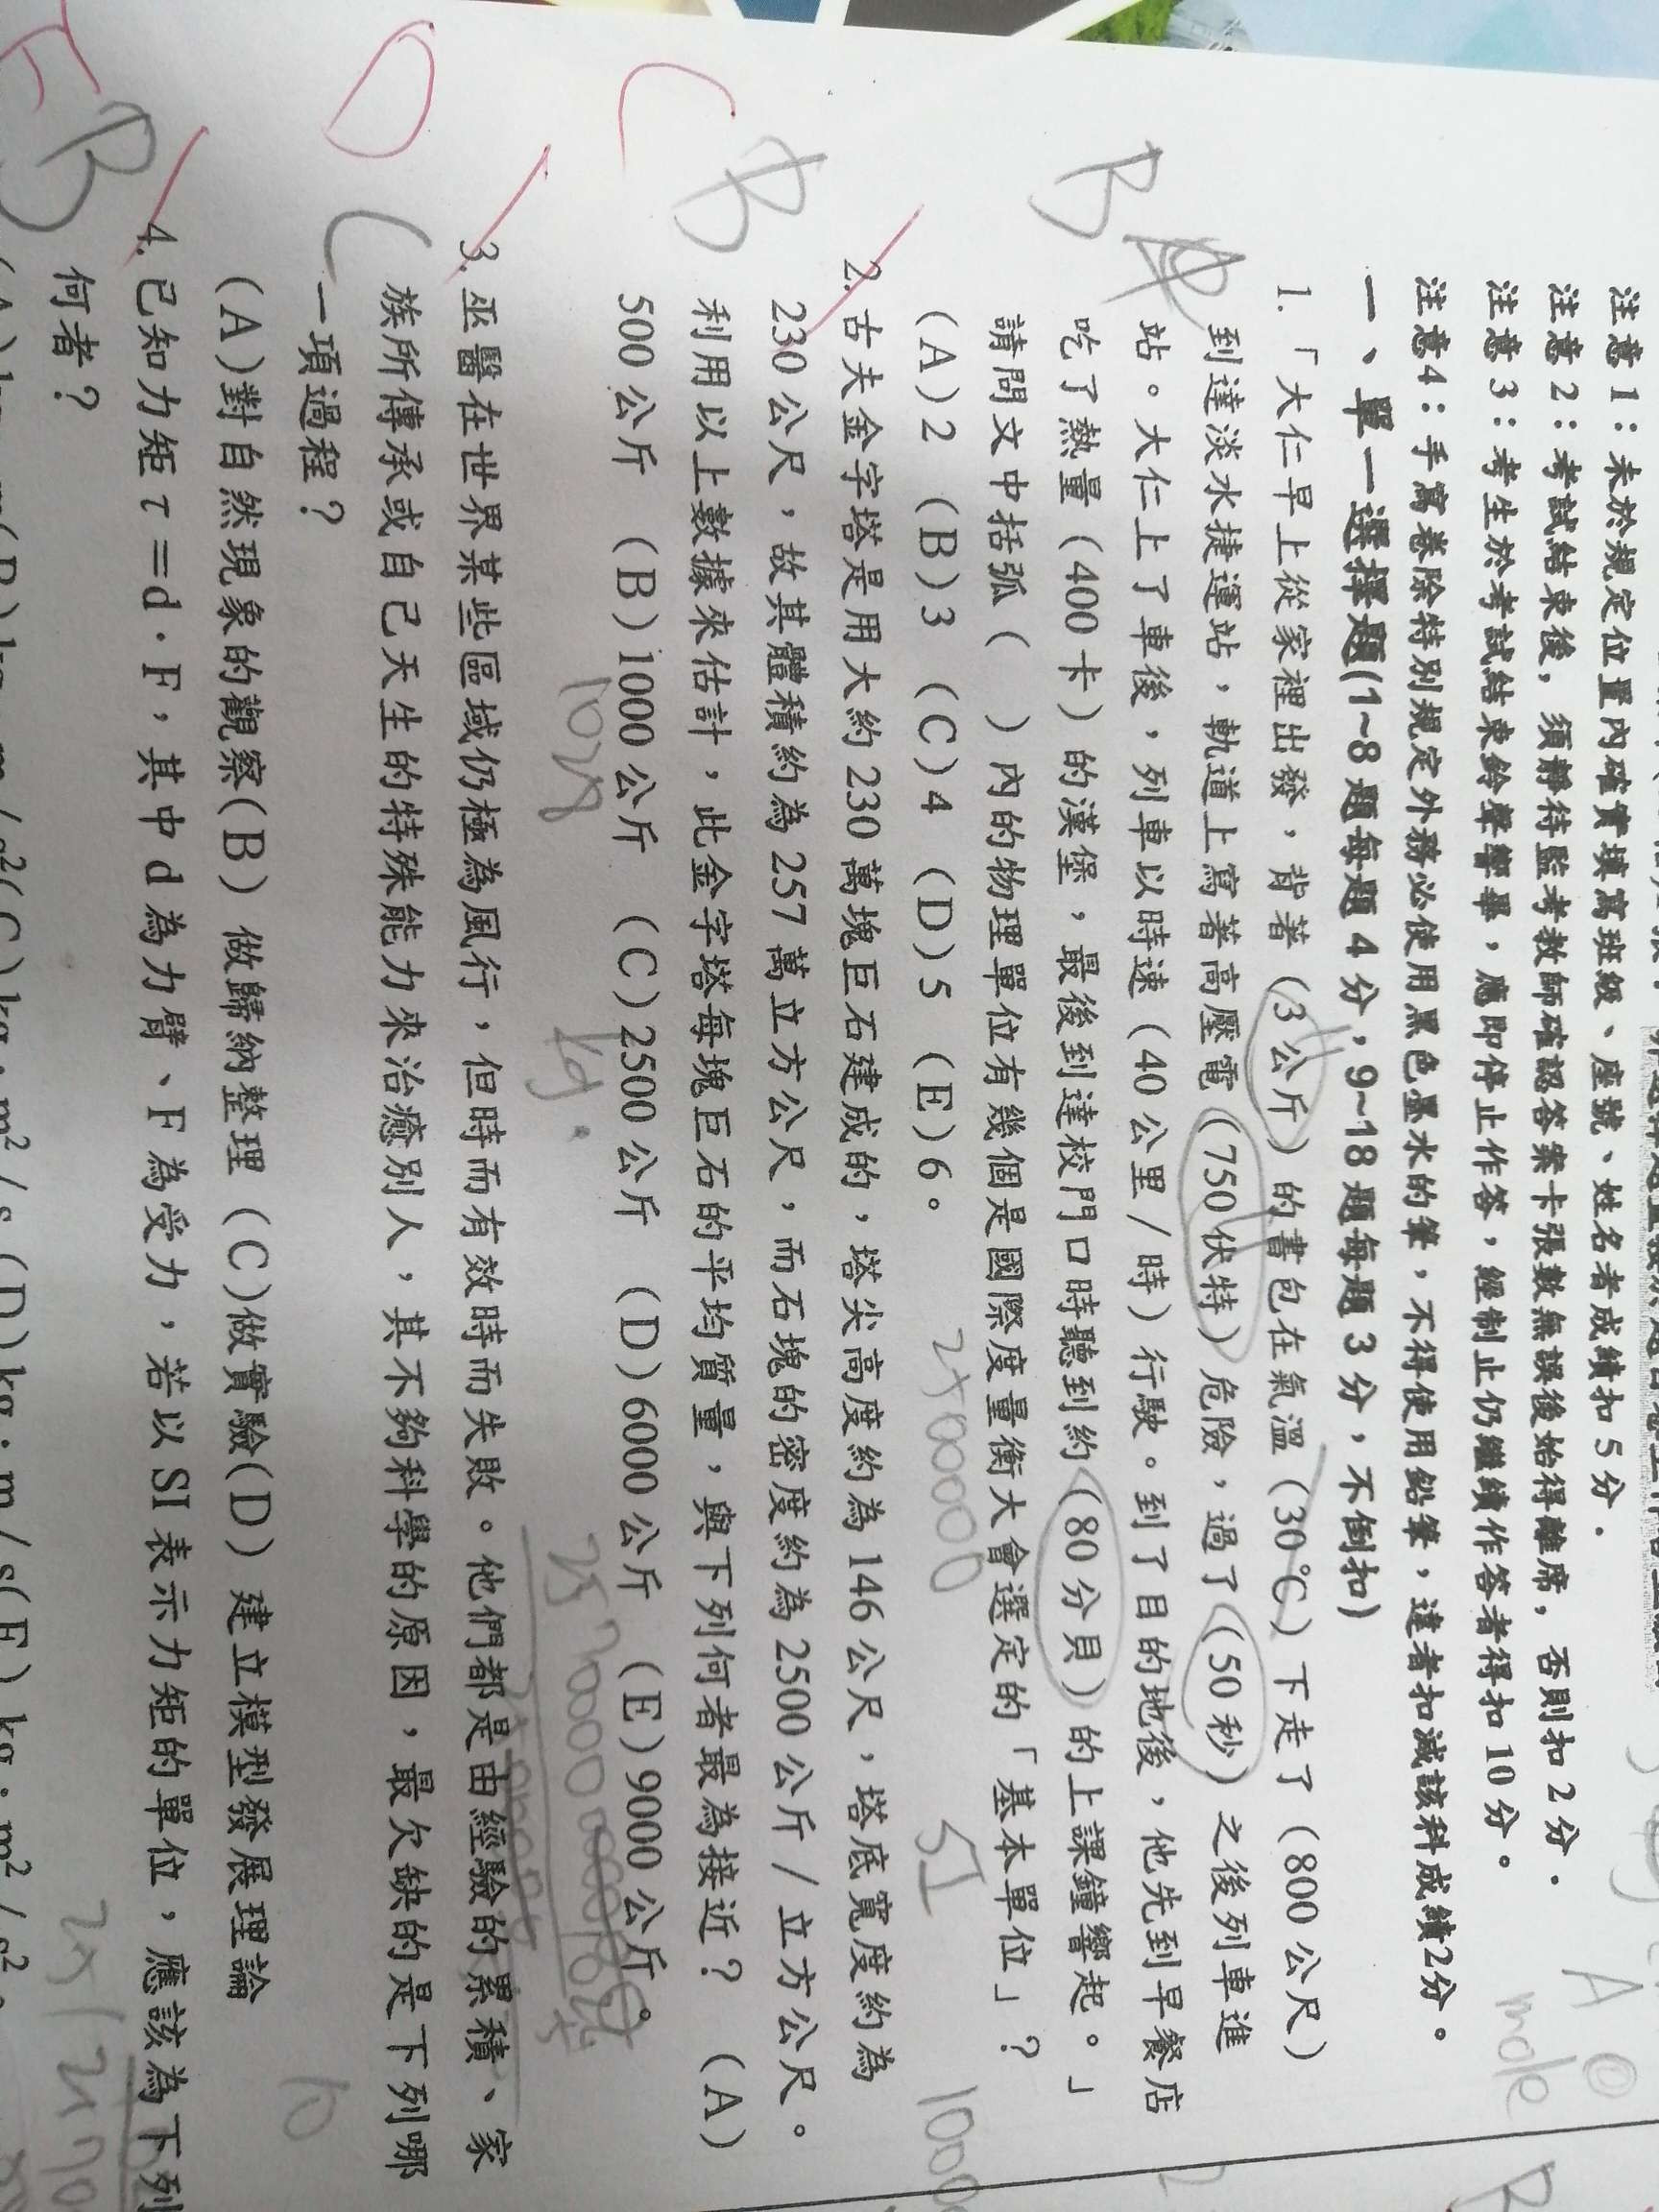 注意1：未於規定位置內確實填寫班級、座號、姓名者成績扣5分．
注意2：考試結束後，須靜待監考教師確認答案卡張數無誤後始得離席，否則扣2分．
注意3：考生於考試結束鈴聲響畢，應即停止作答，經制止仍繼續作答者得扣10分。
注意4：手寫卷除特別規定外務必使用黑色墨水的筆，不得使用鉛筆，違者扣減該科成績2分。
一、單一選擇題(1~8題每題4分，9~18題每題3分，不倒扣)
1.「大仁早上從家裡出發，背著（3公斤）的書包在氣溫（30℃）下走了（800公尺）
到達淡水捷運站，軌道上寫著高壓電（750伏特）危險，過了（50秒）之後列車進
站。大仁上了車後，列車以時速（40公里/時）行駛。到了目的地後，他先到早餐店
吃了熱量（400卡）的漢堡，最後到達校門口時聽到約（80分貝）的上課鐘響起。」
請問文中括弧（ ）內的物理單位有幾個是國際度量衡大會選定的「基本單位」？
(A)2 (B)3 (C)4 (D)5 (E)6。
2.古夫金字塔是用大約230萬塊巨石建成的，塔尖高度約為146公尺，塔底寬度約為
230公尺，故其體積約為257萬立方公尺，而石塊的密度約為2500公斤/立方公尺。
利用以上數據來估計，此金字塔每塊巨石的平均質量，與下列何者最為接近？ (A)
500公斤 (B)1000公斤 (C)2500公斤 (D)6000公斤 (E)9000公斤。
3.巫醫在世界某些區域仍極為風行，但時而有效時而失敗。他們都是由經驗的累積、家
族所傳承或自己天生的特殊能力來治癒別人，其不夠科學的原因，最欠缺的是下列哪
一項過程？
(A)對自然現象的觀察(B) 做歸納整理 (C)做實驗(D) 建立模型發展理論
4.已知力矩τ=d·F，其中d為力臂、F為受力，若以SI表示力矩的單位，應該為下列
何者？
B
B
C
C
D
B
E
A
mole
SI
2500000
1000
kg.
10